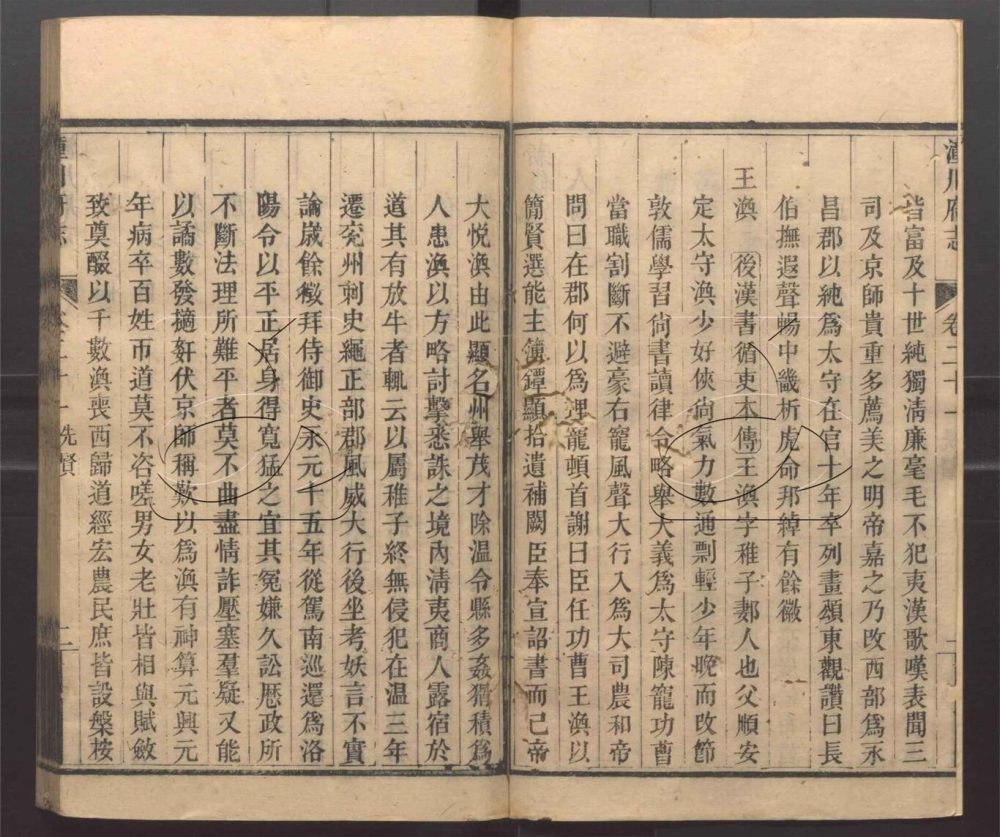 潼川府志 卷二十一
皆富及十世純獨淸廉毫毛不犯夷漢歌嘆表聞三
司及京師貴重多薦美之明帝嘉之乃改西部爲永
昌郡以純爲太守在官十年卒列畫頌東觀讚曰長
伯撫遐聲暢中畿析虎命邦綽有餘徽
王渙 後漢書循吏本傳王渙字稚子郪人也父順安
定太守渙少好俠尙氣力數通剽輕少年晚而改節
敦儒學習尙書讀律令略舉大義爲太守陳寵功曹
當職割斷不避豪右寵風聲大行入爲大司農和帝
問曰在郡何以爲理寵頓首謝曰臣任功曹王渙以
簡賢選能主簿鐔顯拾遺補闕臣奉宣詔書而已帝
大悅渙由此顯名州舉茂才除温令縣多姦猾積爲
人患渙以方略討擊悉誅之境內淸夷商人露宿於
道其有放牛者輒云以屬稚子終無侵犯在温三年
遷兖州刺史繩正部郡風威大行後坐考妖言不實
論歲餘徵拜侍御史永元十五年從駕南巡還爲洛
陽令以平正居身得寬猛之宜其冤嫌久訟厯政所
不斷法理所難平者莫不曲盡情詐壓塞羣疑又能
以譎數發擿奸伏京師稱歎以爲渙有神算元興元
年病卒百姓市道莫不咨嗟男女老壯皆相與賦斂
致奠醊以千數渙喪西歸道經宏農民庶皆設槃桉
潼川府志 卷二十一 先賢 二